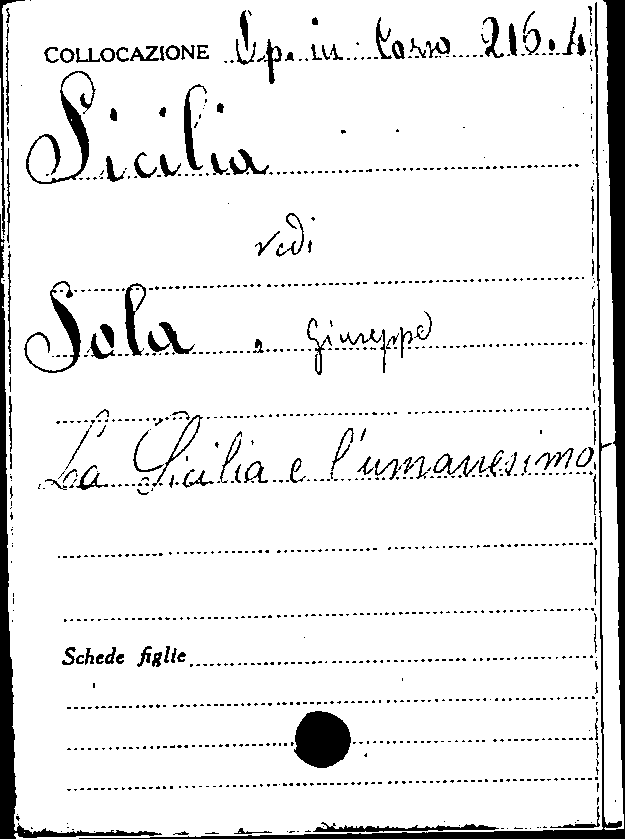 COLLOCAZIONE Op. in Corso 216.4
Sicilia
vedi
Sola, Giuseppe
La Sicilia e l'umanesimo
Schede figlie